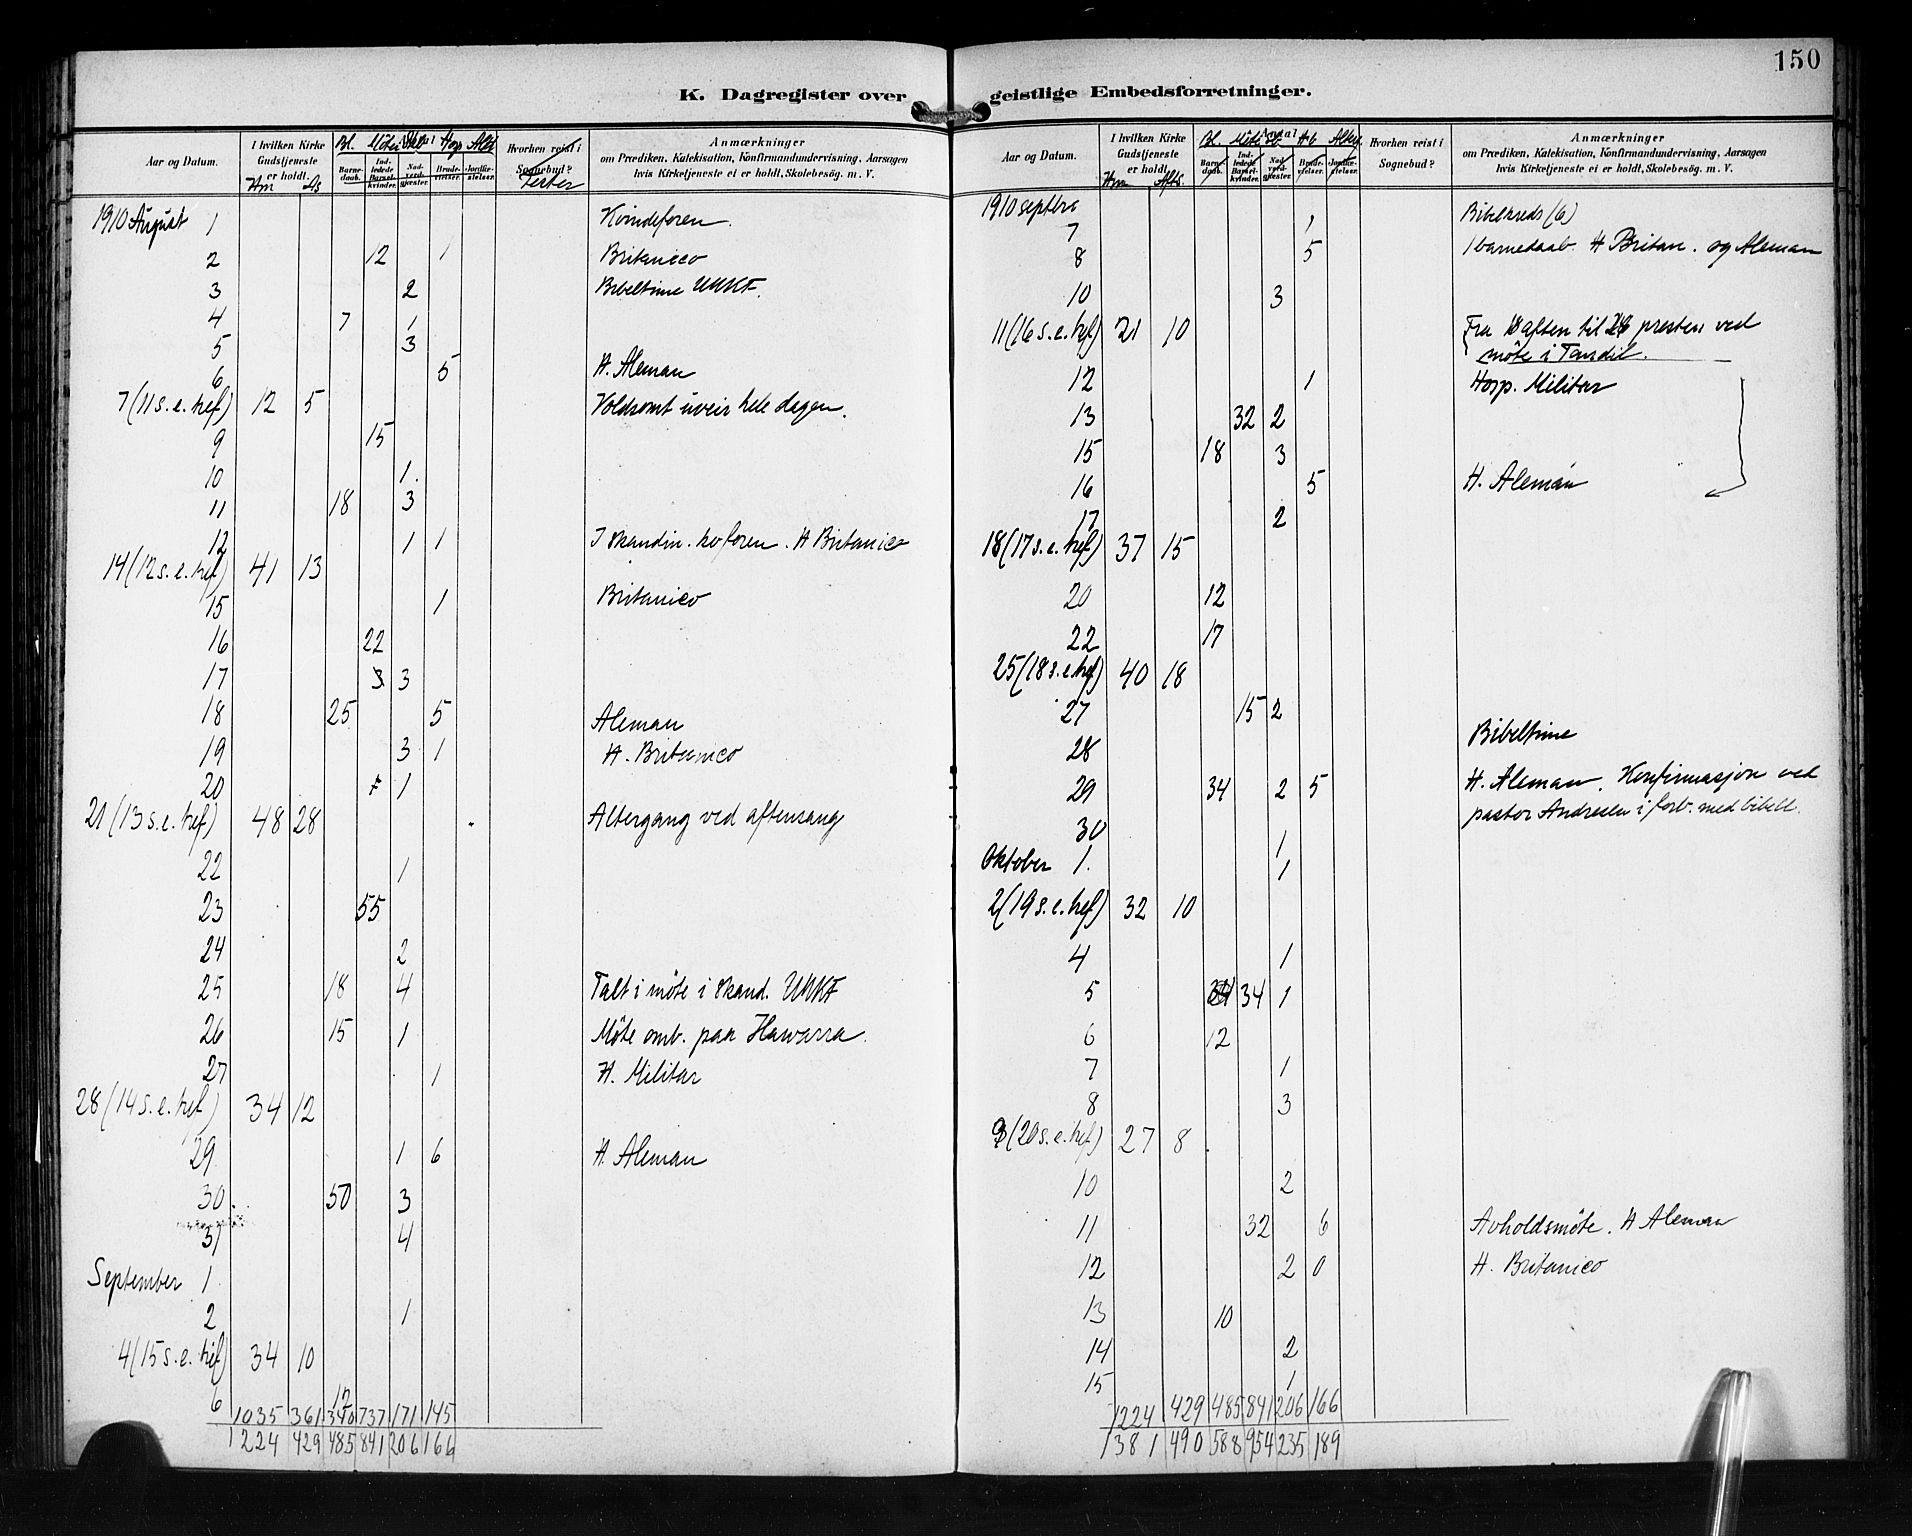 150
K. Dagregister over geistlige Embedsforretninger.
Aar og Datum. I hvilken Kirke Gudstjeneste er holdt. Antal Hvorhen reist i Sognebud? Anmærkninger
om Prædiken, Katekisation, Konfirmandundervisning, Aarsagen
hvis Kirketjeneste ei er holdt, Skolebesøg. m. V.
Barnedaab. Indledede Barselkvinder. Nadverdgjester. Brudevielser. Jordfæstelser.
Hm As Bl. Möte Hosp
1910 August 1 Kvindeforen.
2 12 1 Britanico
3 2 Bibeltime UKKF.
4 7 1
5 3
6 5 H. Aleman
7 (11 s. e. tref) 12 5 Voldsomt uveir hele dagen.
9 15
10 1.
11 18 3
12 1 1 I skandin. hoforen. H Britanico
14 (12 s. e. tref) 41 13
15 1 Britanico
16 22
17 3 3
18 25 5 Aleman
19 3 1 H. Britanico
20 1
21 (13 s. e. tref) 48 28 Altergang ved aftensang
22 1
23 55
24 2
25 18 4 Talt i möte i skand. UKKF
26 15 1 Möte omb. paa Hawarra.
27 1 H. Militar
28 (14 s. e. tref) 34 12
29 1 6 H. Aleman
30 50 3
31 4
September 1
2 1
4 (15 s. e. tref) 34 10
6 12
1035 361 340 737 171 145
1224 429 485 841 206 166
Aar og Datum. I hvilken Kirke Gudstjeneste er holdt. Antal Hvorhen reist i Sognebud? Anmærkninger
om Prædiken, Katekisation, Konfirmandundervisning, Aarsagen
hvis Kirketjeneste ei er holdt, Skolebesøg. m. V.
Barnedaab. Indledede Barselkvinder. Nadverdgjester. Brudevielser. Jordfæstelser.
Hm Afts. Bl. Möte
1910 septbr
7 1 Bibelkreds (6)
8 5 1 barnedaab. H Britan. og Aleman
10 3
11 (16 s. e. tref) 21 10 Fra aften til presten ved
möte i Tandil.
12 1 Hosp. Militar
13 32 2
15 18 3
16 5 H. Alemán
17 2
18 (17 s. e. tref) 37 15
20 12
22 17
25 (18 s. e. tref) 40 18
27 15 2
28 Bibeltime
29 34 2 5 H. Aleman. Konfirmasjon ved
pastor Andresen i forb. med bibelt.
30 1
Oktober 1. 1
2 (19 s. e. tref) 32 10
4 1
5 34 1
6 12
7 1
8 3
9 (20 s. e. tref) 27 8
10 2
11 32 6 Avholdsmöte. H Aleman
12 2 0 H. Britanico
13 10
14 2
15 1
1224 429 485 841 206 166
1381 490 588 954 235 189